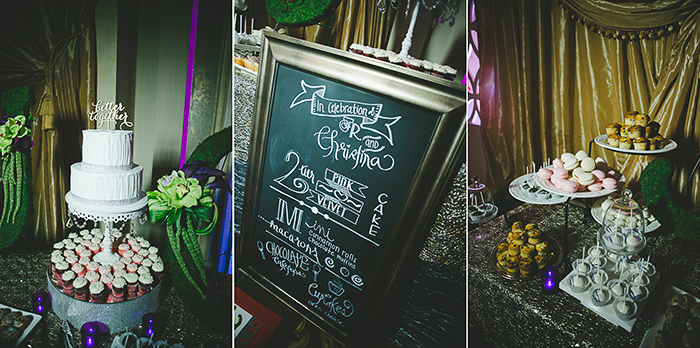 better
together
In Celebration of
JR
and
Christina
2 tier
PINK
VELVET
CAKE
Mini
cinnamon rolls
chocolate muffins
macarons
CHOCOLATE
Cakepops
Cupcakes